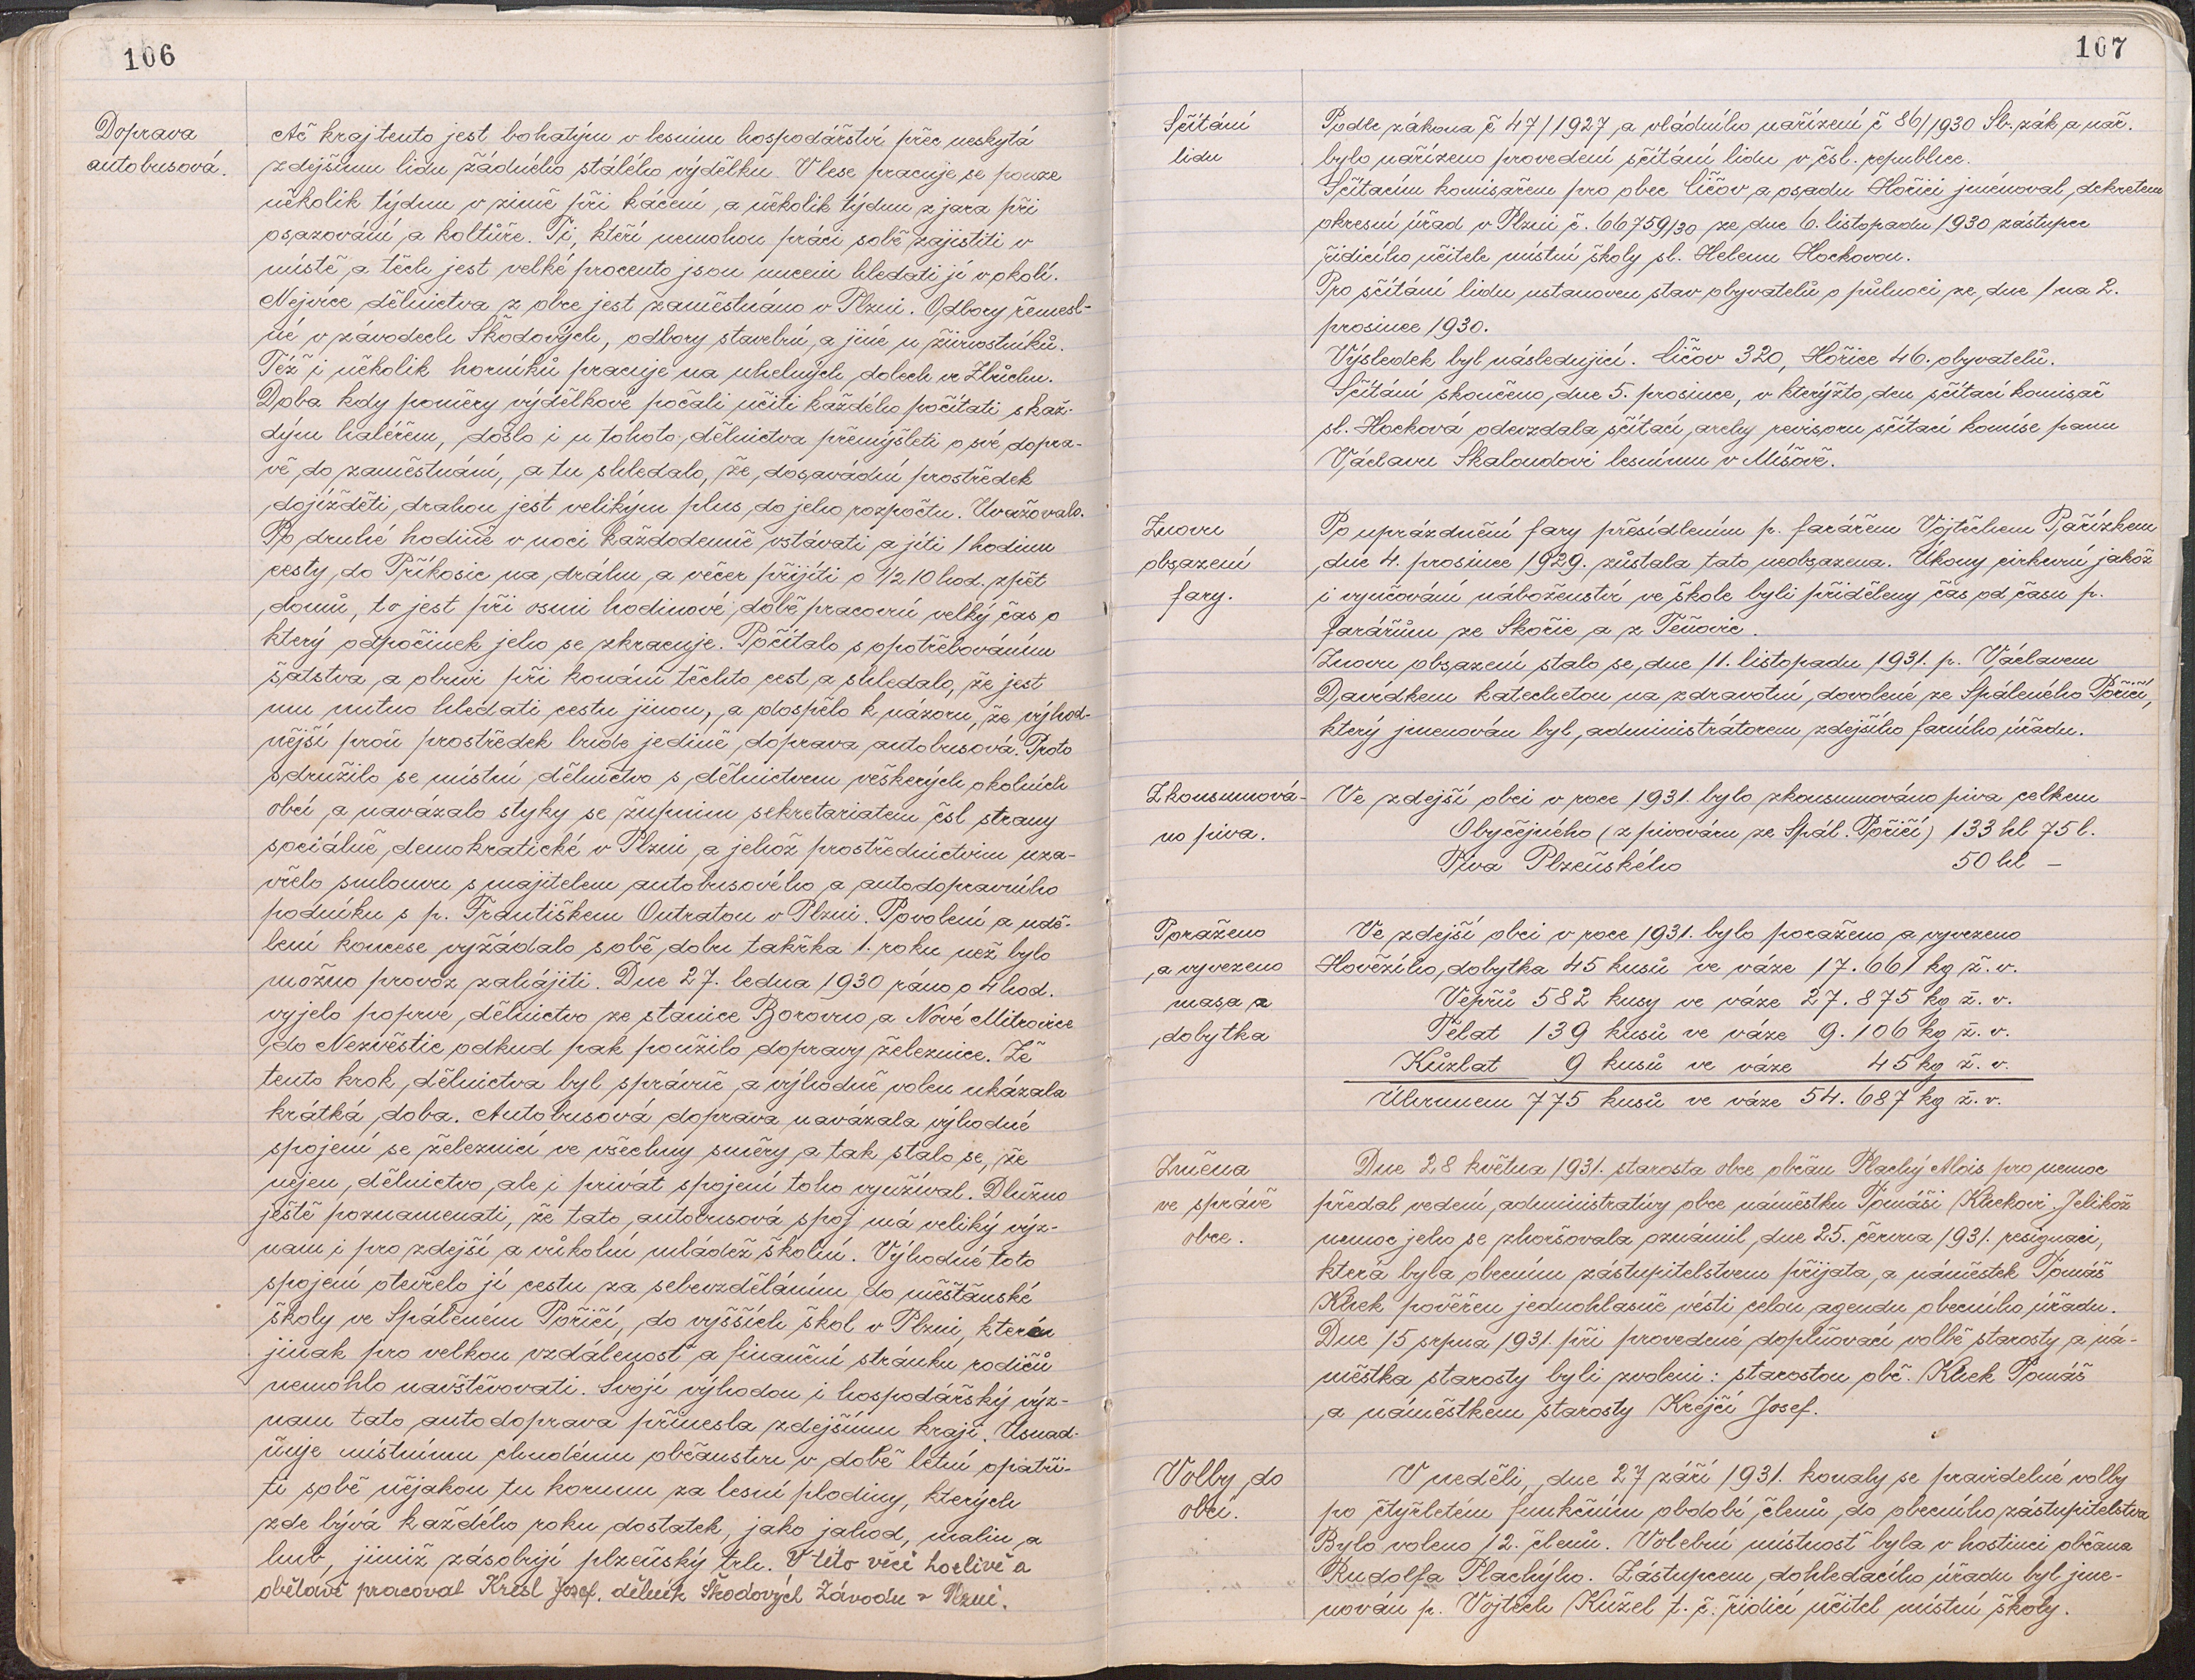 106
Doprava
autobusová.
Ač kraj tento jest bohatým v lesním hospodářství přec neskytá
zdejšímu lidu žádného stálého výdělku. V lese pracuje se pouze
několik týdnu v zimě při kácení, a několik týdnu z jara při
osazování a koltůře. Ti, kteří nemohou práci sobě zajistiti v
místě a těch jest velké procento jsou nuceni hledati jí v okolí.
Nejvíce dělnictva z obce jest zaměstnáno v Plzni. Odbory řemesl-
né v závodech Škodových, odbory stavební, a jiné u živnostníků.
Též i několik horníků pracuje na uhelných dolech ve Zbůchu.
Doba kdy poměry výdělkové počali učiti každého počítati s kaž-
dým haléřem, došlo i u tohoto dělnictva přemýšleti o své dopra-
vě do zaměstnání, a tu shledalo, že dosavádní prostředek
dojížděti drahou jest velikým plus do jeho rozpočtu. Uvažovalo.
Po druhé hodině v noci každodenně vstávati a jíti 1 hodinu
cesty do Příkosic na dráhu, a večer přijíti o 1/2 10 hod. zpět
domů, to jest při osmi hodinové době pracovní velký čas o
který odpočinek jeho se zkracuje. Počítalo s opotřebováním
šatstva, a obuvi při konání těchto cest, a shledalo, že jest
mu nutno hledati cestu jinou, a dospělo k názoru, že výhod-
nější proň prostředek bude jedině dóprava autobusová. Proto
sdružilo se místní dělnictvo s dělnictvem veškerých okolních
obcí, a navázalo styky se župním sekretariatem čsl strany
sociálně demokratické v Plzni, a jehož prostřednictvím uza-
vřelo smlouvu s majitelem autobusového a autodopravního
podniku s p. Františkem Outratou v Plzni. Povolení a udě-
lení koncese vyžádalo sobě dobu takřka 1. roku než bylo
možno provoz zahájiti. Dne 27. ledna 1930 ráno o 4 hod.
vyjelo poprve dělnictvo ze stanice Borovno, a Nové Mitrovice
do Nezvěstic odkud pak použilo dopravy železnice. Že
tento krok dělnictva byl správně a výhodně volen ukázala
krátká doba. Autobusová doprava navázala výhodné
spojení se železnicí ve všechny směry, a tak stalo se, že
nejen dělnictvo, ale i privát spojení toho využíval. Dlužno
ještě poznamenati, že tato autobusová spoj má veliký výz-
nam i pro zdejší a vůkolní mládež školní. Výhodné toto
spojení otevřelo jí cestu za sebevzděláním do měšťanské
školy ve Spáleném Poříčí, do vyšších škol v Plzni, kterén
jinak pro velkou vzdálenost a finanční stránku rodičů
nemohlo navštěvovati. Svojí výhodou i hospodářský výz-
nam tato autodoprava přinesla zdejšímu kraji. Usnad-
ňuje místnímu chudému občanstvu v době letní opatři-
ti sobě nějakou tu korunu za lesní plodiny, kterých
zde bývá každého roku dostatek, jako jahod, malin, a
hub, jimiž zásobují plzeňský trh. V této věci horlivě a
obětavě pracoval Kresl Josef. dělník Škodových Závodu v Plzni.
107
Sčítání
lidu
Podle zákona č 47/1927, a vládního nařízení č 86/1930 Sb. zák a nař.
bylo nařízeno provedení sčítání lidu v čsl. republice.
Sčítacím komisařem pro obec Číčov, a osadu Hořici jménoval dekretem
okresní úřad v Plzni č. 66759/30 ze dne 6. listopadu 1930 zástupce
řidícího učitele místní školy sl. Helenu Hockovou.
Pro sčítání lidu ustanoven stav obyvatelů o půlnoci ze dne 1 na 2.
prosince 1930.
Výsledek byl následující. Číčov 320, Hořice 46. obyvatelů.
Sčítání skončeno dne 5. prosince, v kterýžto den sčítací komisař
sl. Hocková odevzdala sčítací archy revisoru sčítací komise panu
Václavu Skaloudovi lesnímu v Míšově.
Znovu
obsazení
fary.
Po uprázdnění fary přesídlením p. farářem Vojtěchem Pařízkem
dne 4. prosince 1929. zůstala tato neobsazena. Úkony církevní jakož
i vyučování náboženství ve škole byli přiděleny čas od času p.
farářům ze Skořic a z Těňovic.
Znovu obsazení stalo se dne 11. listopadu 1931. p. Václavem
Davídkem katechetou na zdravotní dovolené ze Spáleného Poříčí,
který jmenován byl administrátorem zdejšího farního úřadu.
Zkonsumová-
no piva.
Ve zdejší obci v roce 1931. bylo zkonsumováno piva celkem
Obyčejného (z pivováru ze Spál. Poříčí) 133 hl 75 l.
Piva Plzeňského 50 hl —
Poraženo
a vyvezeno
masa a
dobytka
Ve zdejší obci v roce 1931. bylo poraženo a vyvezeno
Hovězího dobytka 45 kusů ve váze 17.661 kg ž. v.
Vepřů 582 kusy ve váze 27.875 kg ž. v.
Telat 139 kusů ve váze 9.106 kg ž. v.
Kůzlat 9 kusů ve váze 45 kg ž. v.
Úhrnnem 775 kusů ve váze 54.687 kg ž. v.
Změna
ve správě
obce.
Dne 28 května 1931. starosta obce občan Plachý Alois pro nemoc
předal vedení administratívy obce náměstku Tomáši Klickovi. Jelikož
nemoc jeho se zhoršovala oznámil dne 25. června 1931. resignaci,
která byla obecním zástupitelstvem přijata, a náměstek Tomáš
Klick pověřen jednohlasně vésti celou agendu obecního úřadu.
Dne 15 srpna 1931. při provedené doplňovací volbě starosty a ná-
městka starosty byli zvoleni: starostou obč. Klick Tomáš
a náměstkem starosty Krejčí Josef.
Volby do
obcí.
V neděli dne 27 září 1931. konaly se pravidelné volby
po čtyřletém funkčním období členů do obecního zástupitelstva
Bylo voleno 12. členů. Volební místnost byla v hostinci občana
Rudolfa Plachýho. Zástupcem dohledacího úřadu byl jme-
nován p. Vojtěch Kužel t. č. řídicí učitel místní školy.